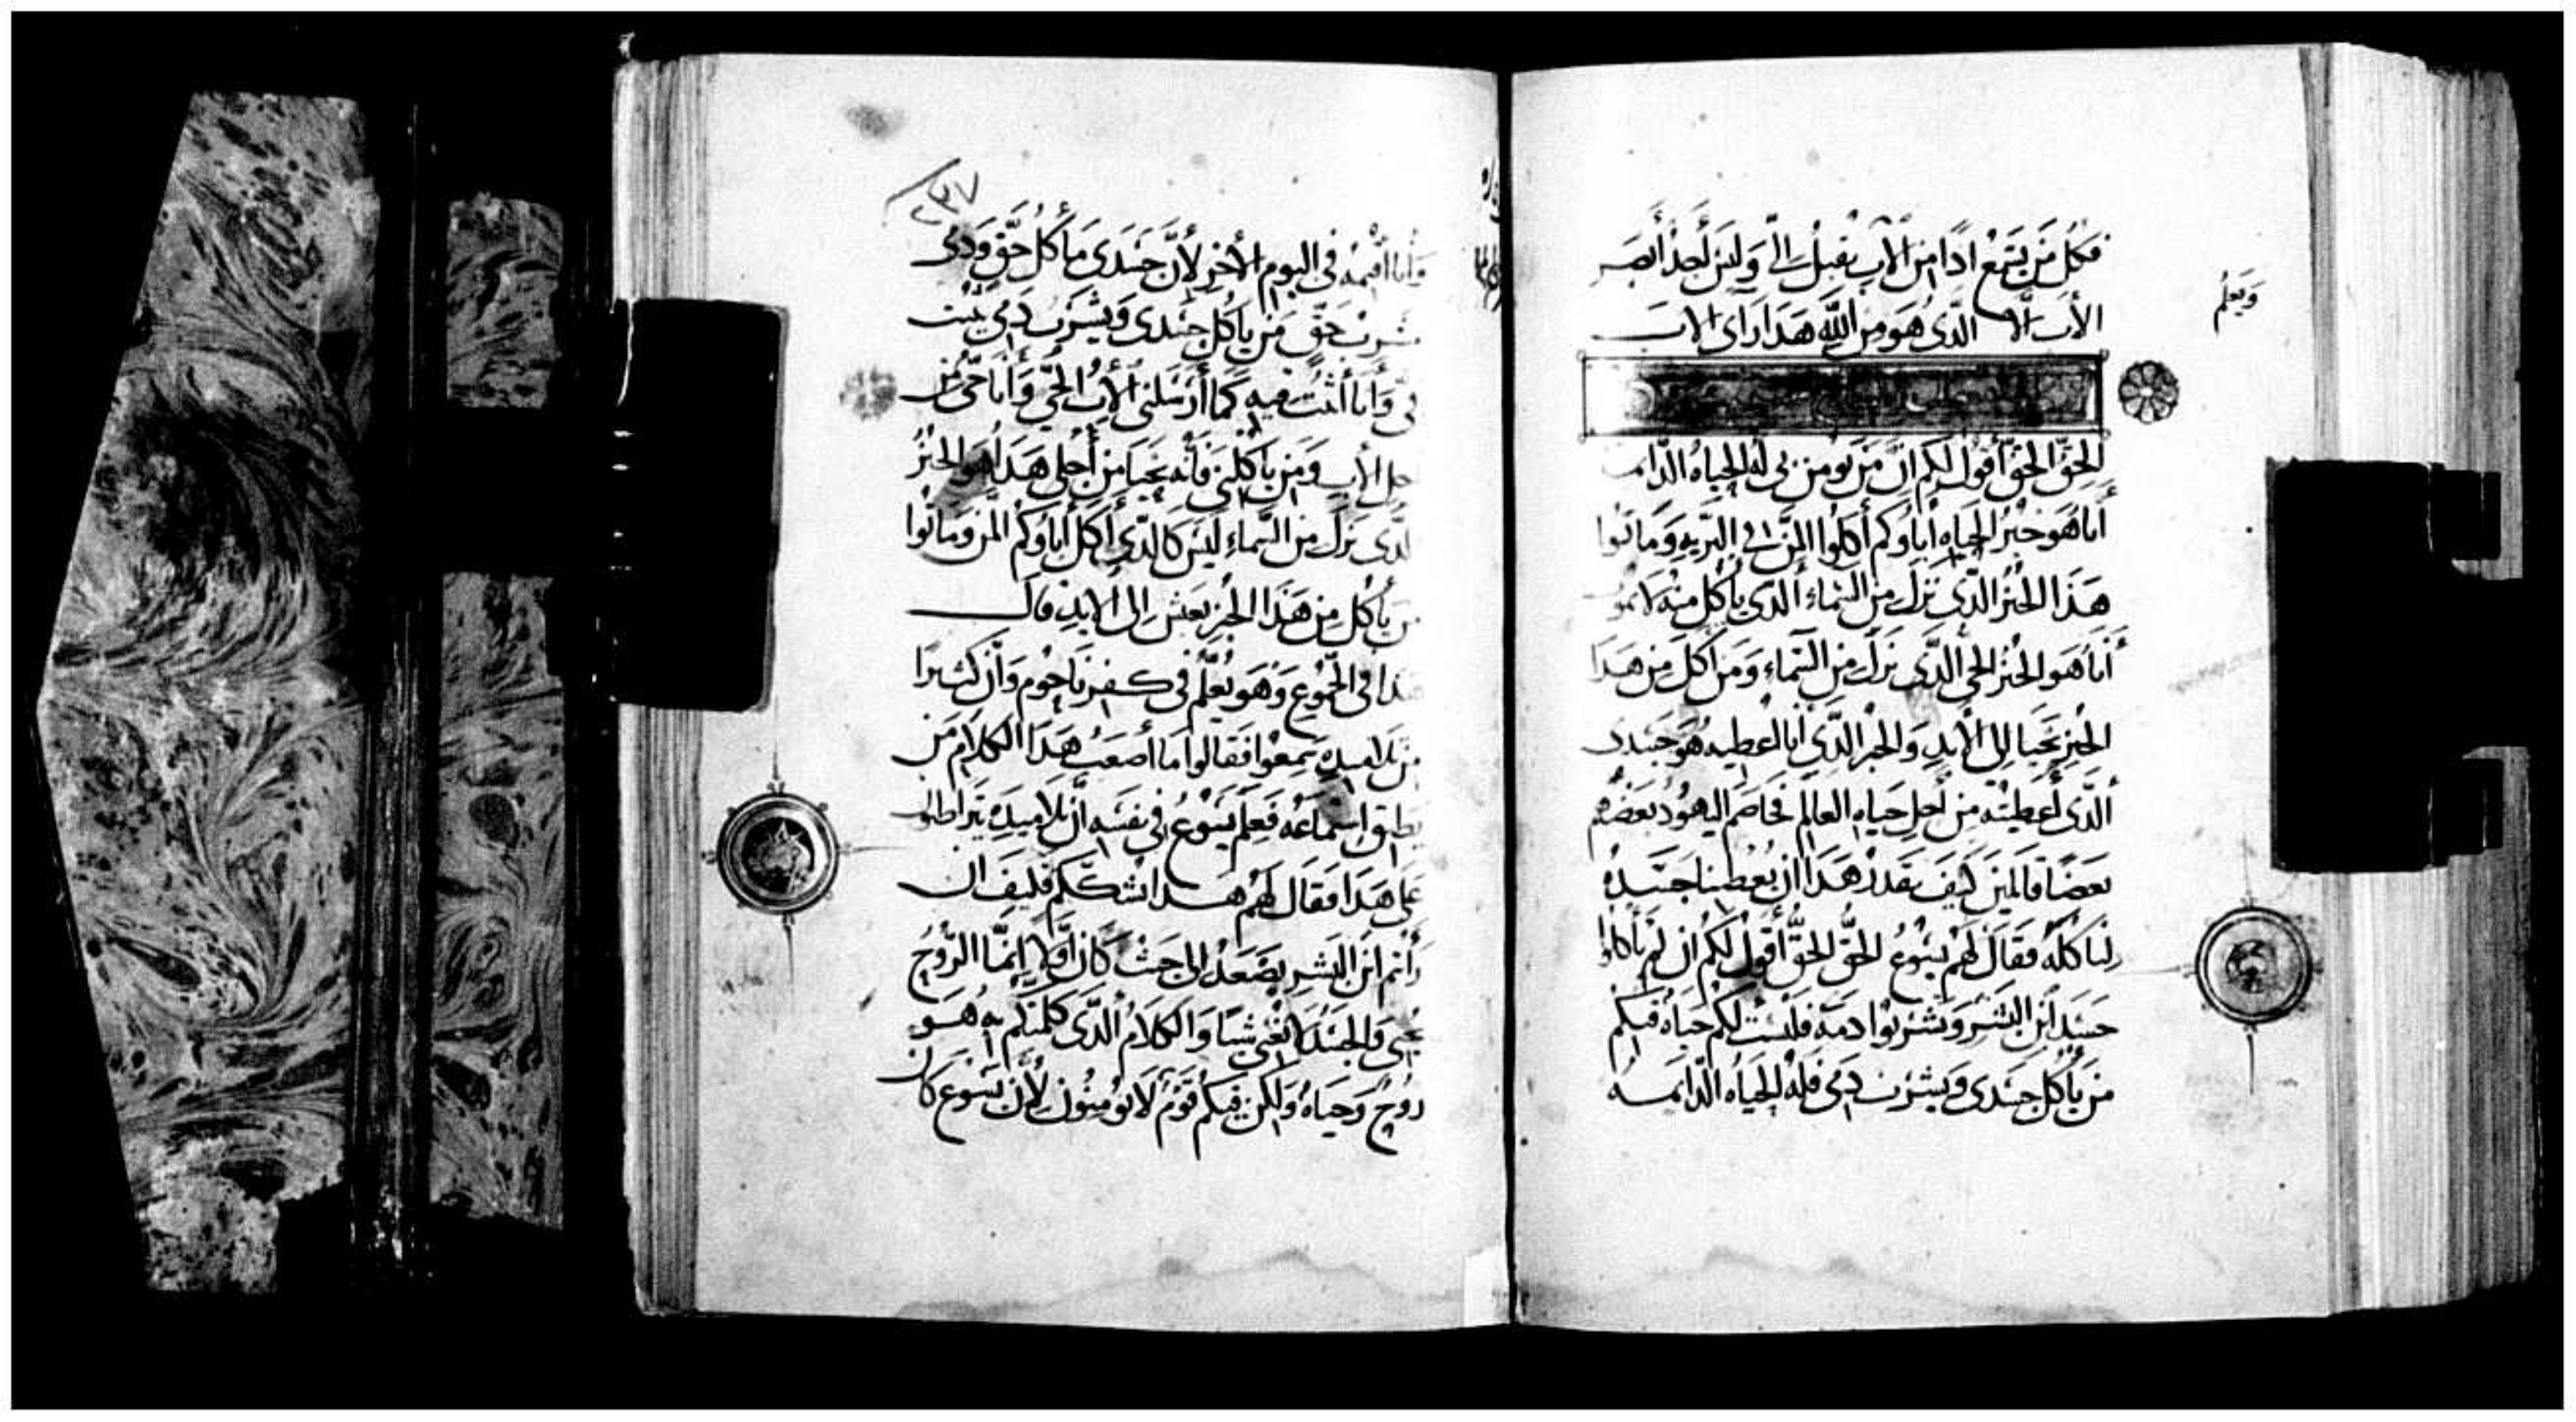 فكل من يسمع اذا من الاب يقبل الىّ وليس أحد أبصر
الأب الا الذى هو من الله هذا راى الاب
ويعلم
الحق الحق أقول لكم ان من يومن بى له الحياه الدايمه
أنا هو خبز الحياه اباوكم أكلوا المن فى البريه وماتوا
هذا الخبز الذى نزل من السماء الذى ياكل منه لا يموت
أنا هو الخبز الحى الذى نزل من السماء ومن اكل من هذا
الخبز يحيا الى الأبد والخبز الذى أنا اعطيه هو جسدى
الذى أعطيته من أجل حياه العالم فخاصم اليهود بعضهم
بعضا قايلين كيف يقدر هذا ان يعطينا جسده
لناكله فقال لهم يسوع الحق الحق أقول لكم ان لم تأكلوا
جسد ابن البشر وتشربوا دمه فليست لكم حياه فيكم
من يأكل جسدى ويشرب دمى فله الحياه الدايمه
٢٣٧
وأنا أقيمه فى اليوم الأخر لأن جسدى مأكل حق ودمى
مشرب حق من ياكل جسدى ويشرب دمى يثبت
فى وأنا أثبت فيه كما أرسلنى الأب الحي وأنا حى من
أجل الأب ومن ياكلنى فأنه يحيا من أجلى هذا هو الخبز
الذى نزل من السماء ليس كالذى أكل أباوكم المن وماتوا
من يأكل من هذا الخبز يعش الى الابد قال
هذا فى الجموع وهو يعلم فى كفرناحوم وأن كثيرا
من تلاميده سمعوا فقالوا ما أصعب هذا الكلام من
يطيق استماعه فعلم يسوع فى نفسه أن تلاميده يتراطنون
على هذا فقال لهم هذا اشككم فكيف ان
رأيتم ابن البشر يصعد الى حيث كان أولا إنما الروح
يحيى والجسد لا يغنى شيا والكلام الذى كلمتكم به هو
روح وحياه ولكن فيكم قوم لا يومنون لأن يسوع كان